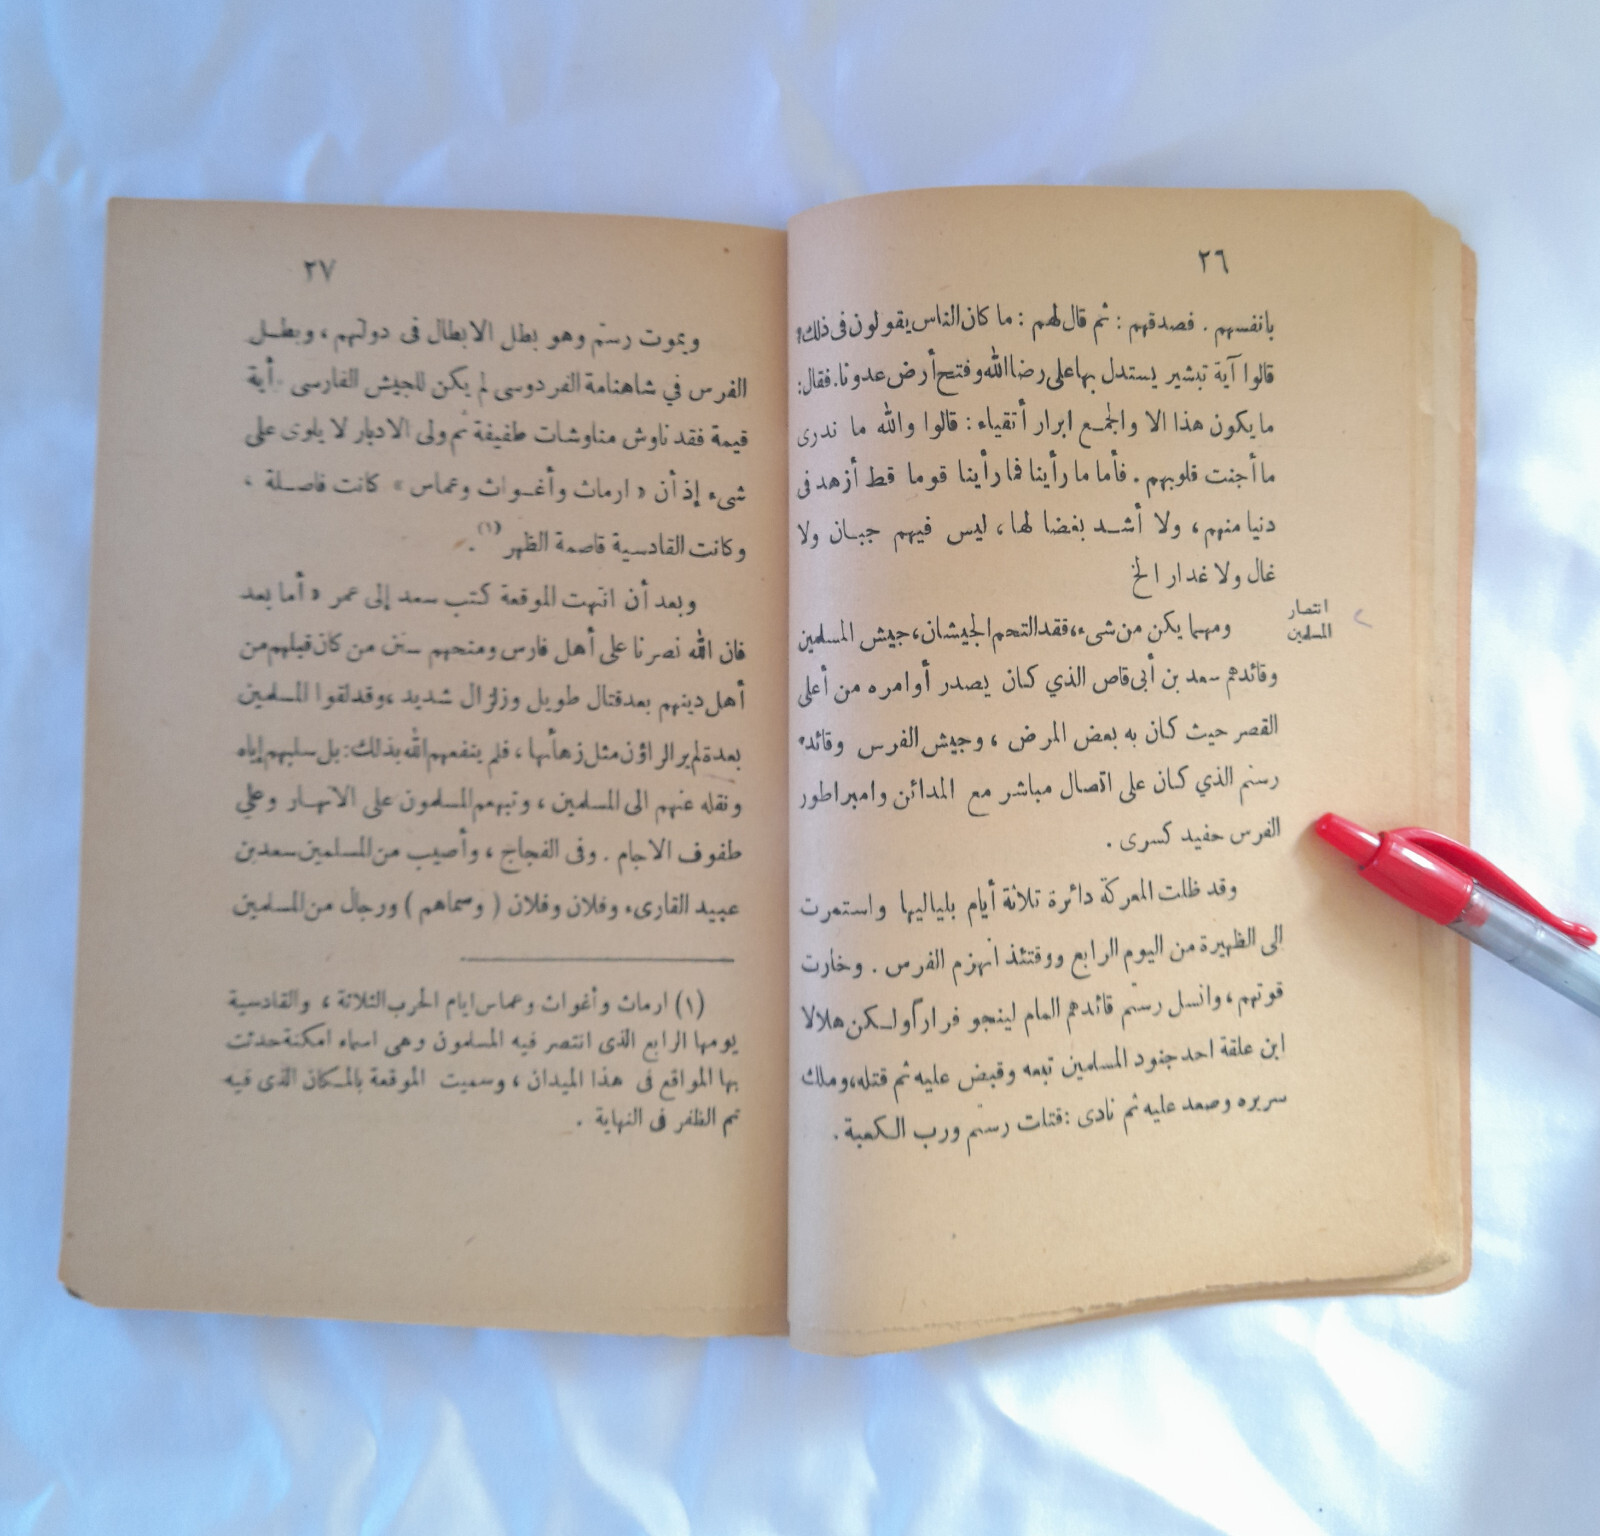 ٢٦
بانفسهم . فصدقهم : ثم قال لهم : ما كان الناس يقولون فى ذلك؟
قالوا آية تبشير يستدل بها على رضا الله وفتح أرض عدونا. فقال:
ما يكون هذا الا والجمع ابرار أتقياء : قالوا والله ما ندرى
ما أجنت قلوبهم . فأما ما رأينا فما رأينا قوما قط أزهد فى
دنيا منهم ، ولا أشد بغضا لها ، ليس فيهم جبان ولا
غال ولا غدار الخ
انتصار
المسلمين
ومهما يكن من شىء، فقد التحم الجيشان، جيش المسلمين
وقائدهم سعد بن أبى قاص الذي كان يصدر أوامره من أعلى
القصر حيث كان به بعض المرض ، وجيش الفرس وقائده
رستم الذي كان على اتصال مباشر مع المدائن وامبراطور
الفرس حفيد كسرى .
وقد ظلت المعركة دائرة ثلاثة أيام بلياليها واستمرت
الى الظهيرة من اليوم الرابع ووقتئذ انهزم الفرس . وخارت
قوتهم ، وانسل رستم قائدهم العام لينجو فراراً ولكن هلالا
ابن علقة احد جنود المسلمين تبعه وقبض عليه ثم قتله، وملك
سريره وصعد عليه ثم نادى : قتلت رستم ورب الكعبة .
٢٧
وبموت رستم وهو بطل الابطال فى دولتهم ، وبطل
الفرس في شاهنامة الفردوسى لم يكن للجيش الفارسى أية
قيمة فقد ناوش مناوشات طفيفة ثم ولى الادبار لا يلوى على
شىء إذ أن « ارماث وأغواث وعماس » كانت فاصلة ،
وكانت القادسية قاصمة الظهر (١) .
وبعد أن انتهت الموقعة كتب سعد إلى عمر « أما بعد
فان الله نصرنا على أهل فارس ومنحهم سنن من كان قبلهم من
أهل دينهم بعد قتال طويل وزلزال شديد ، وقد لقوا المسلمين
بعدة لم ير الراؤن مثل زهائها ، فلم ينفعهم الله بذلك: بل سلبهم إياه
ونقله عنهم الى المسلمين ، وتبعهم المسلمون على الانهار وعلى
طفوف الاجام . وفى الفجاج ، وأصيب من المسلمين سعد بن
عبيد القارىء وفلان وفلان ( وسماهم ) ورجال من المسلمين
(١) ارماث وأغواث وعماس ايام الحرب الثلاثة ، والقادسية
يومها الرابع الذى انتصر فيه المسلمون وهى اسماء امكنة حدثت
بها المواقع فى هذا الميدان ، وسميت الموقعة بالمكان الذى فيه
تم الظفر فى النهاية .